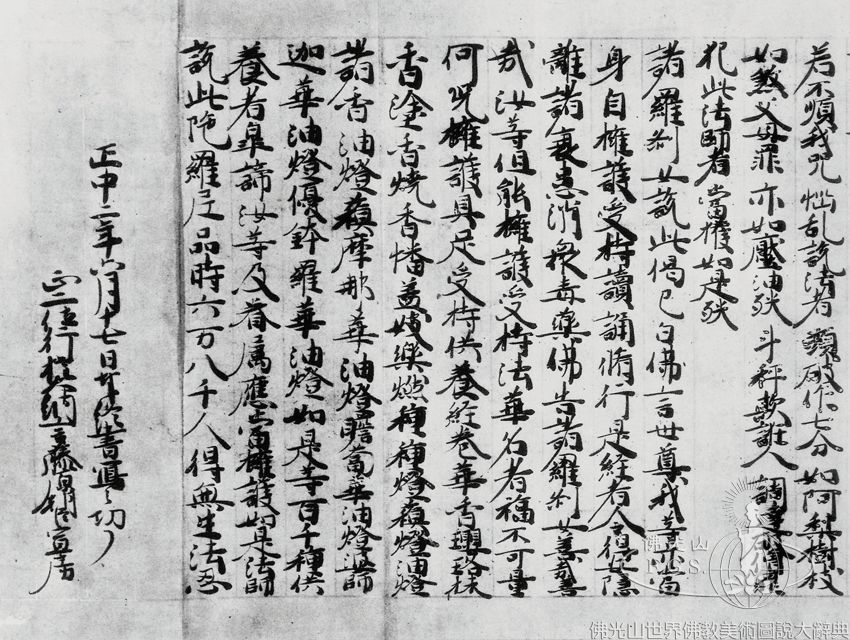 若不順我呪 惱乱說法者 頭破作七分 如阿梨樹枝
如煞父母罪 亦如壓油殃 斗秤欺誑人 調達破僧罪
犯此法師者 當獲如是殃
諸羅刹女說此偈已白佛言世尊我等亦當
身自擁護受持讀誦脩行是経者令得安隱
離諸衰患消衆毒藥佛告諸羅刹女善哉善
哉汝等但能擁護受持法華名者福不可量
何况擁護具足受持供養経巻華香瓔珞抹
香塗香燒香幡盖妓樂燃種種燈蘓燈油燈
諸香油燈蘓摩那華油燈瞻蔔華油燈婆師
迦華油燈優鉢羅華油燈如是等百千種供
養者睾諦汝等及眷属應當擁護如是法師
說此陁羅尼品時六万八千人得無生法忍
正中二年六月十七日終書寫之功了
正二位行權大納言藤原朝臣宣房
佛光山
佛光山世界佛教美術圖說大辭典